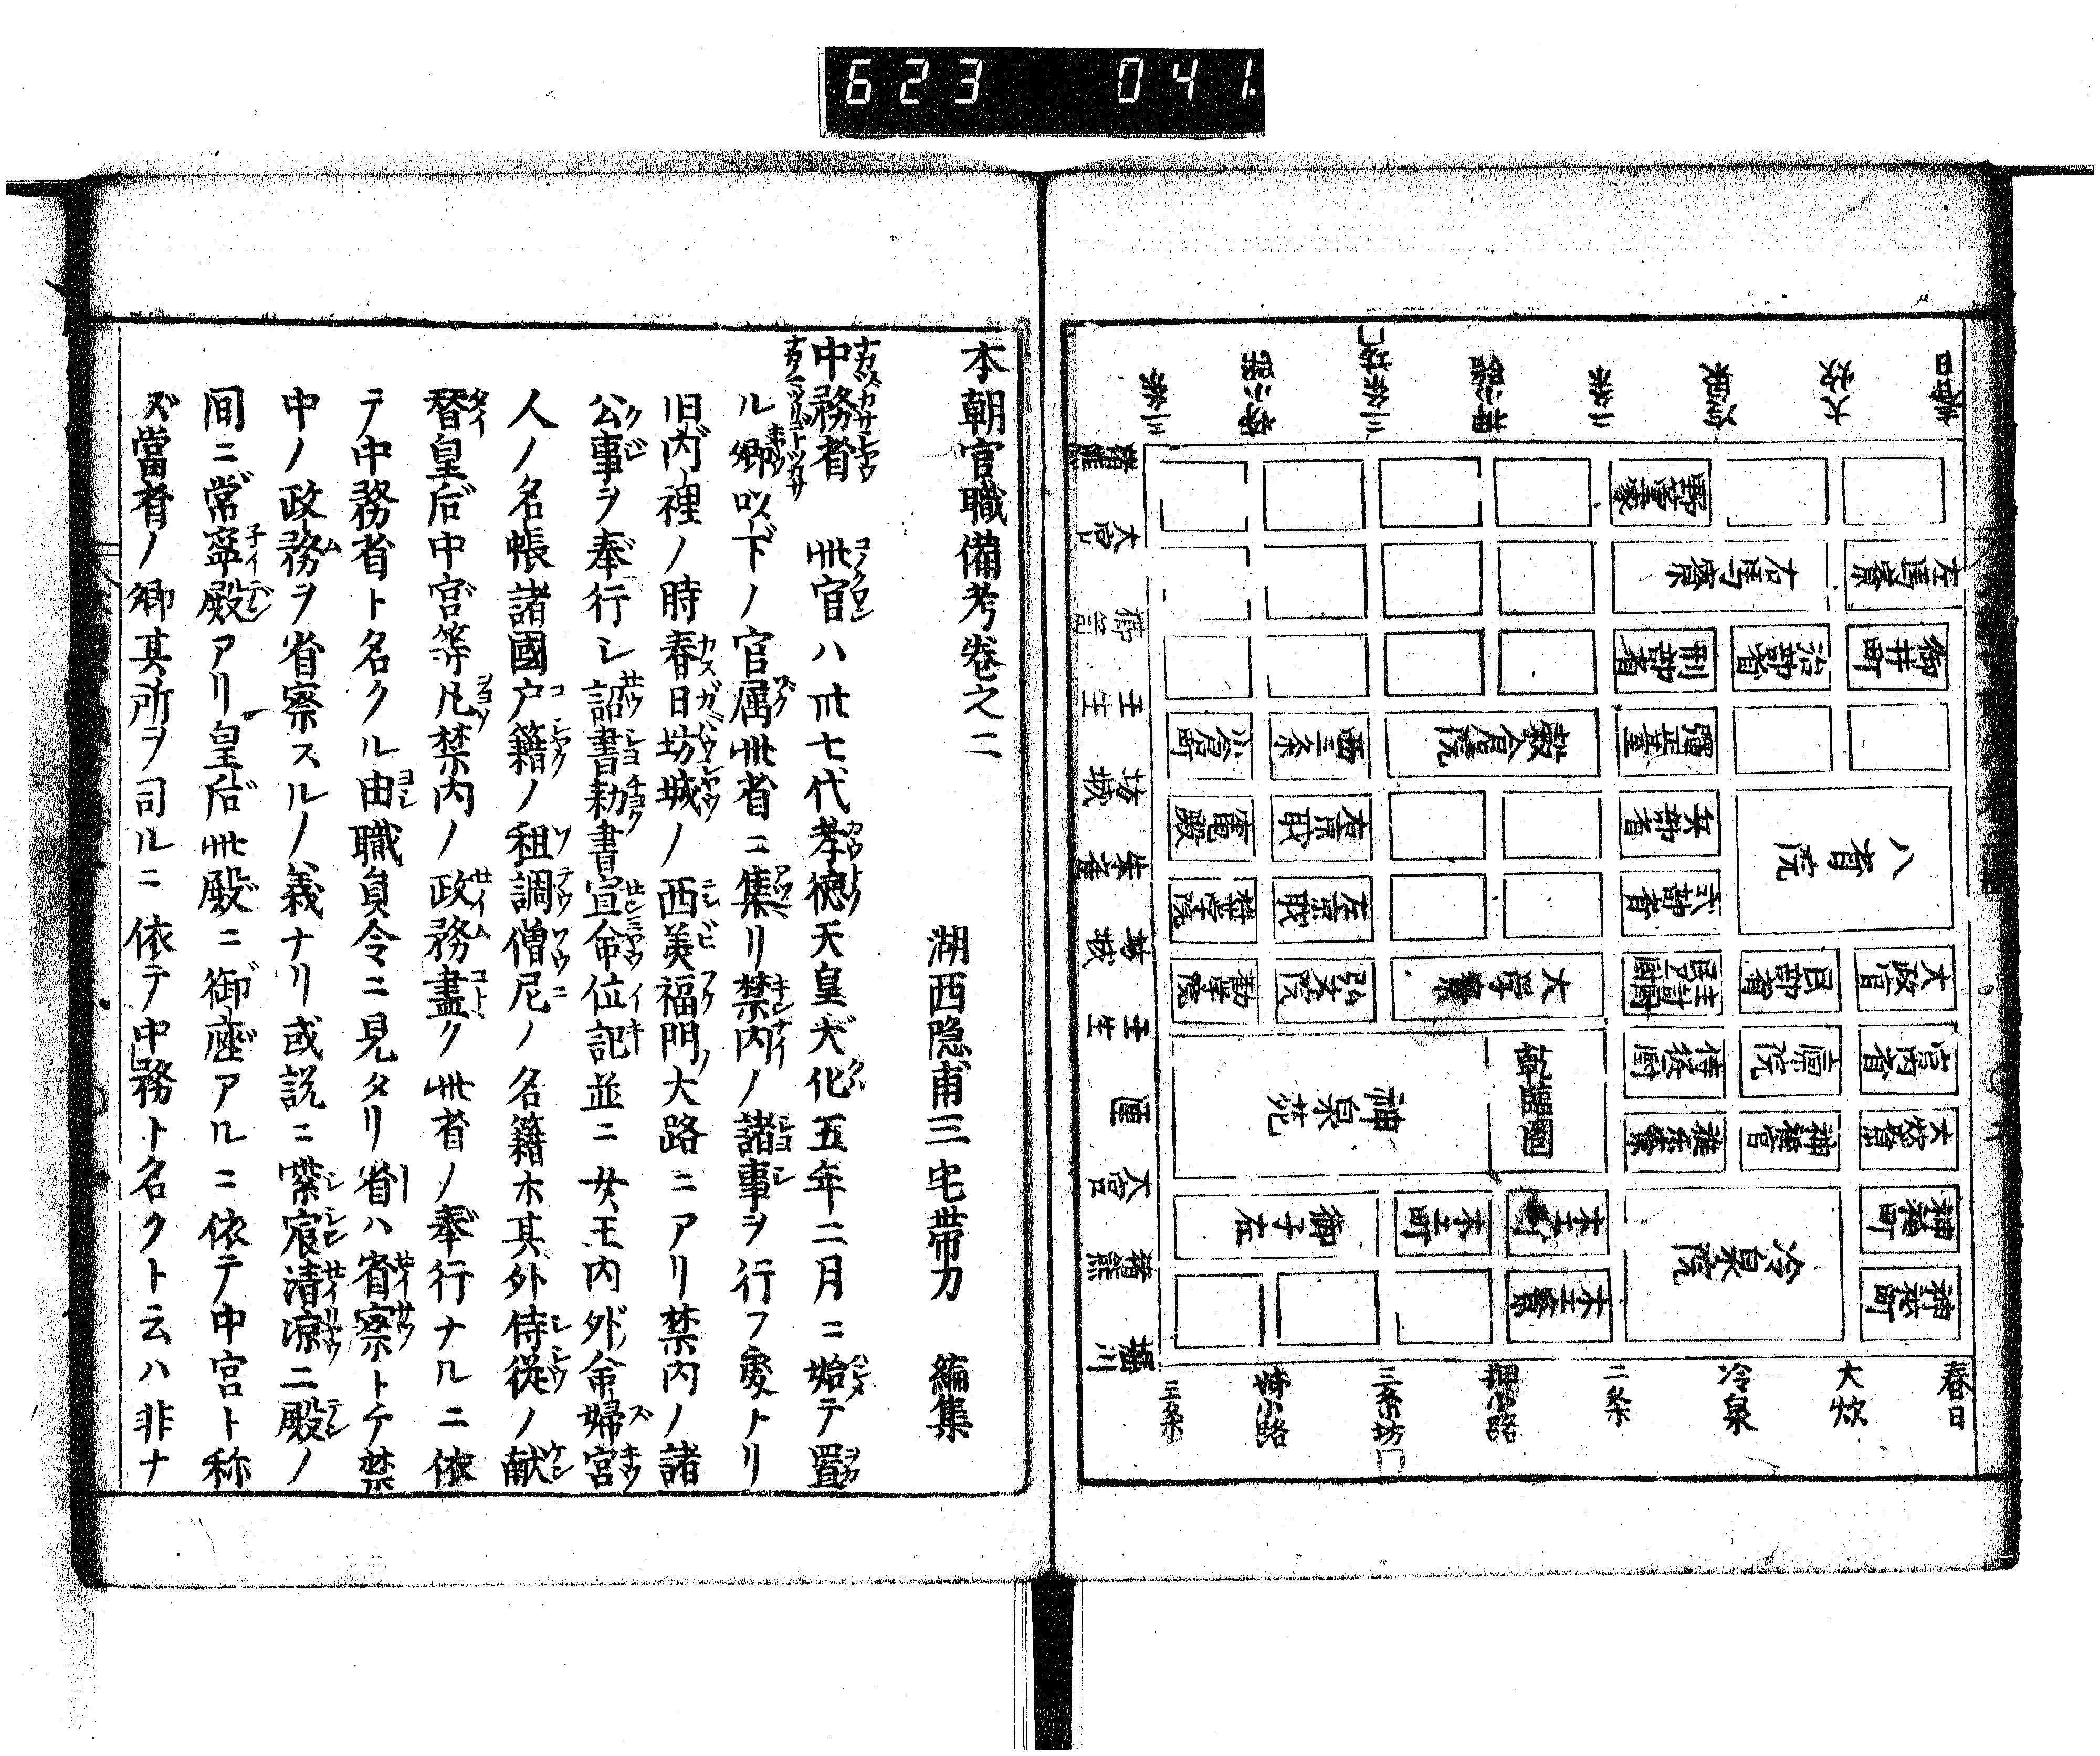 623 041.
春日
大炊
冷泉
二条
押小路
三条坊門
姉小路
三条
猪熊
大宮
櫛笥
壬生
坊城
朱雀
坊城
壬生
匣
大宮
猪熊
堀川
左馬寮
右馬寮
御井町
治部省
刑部省
弾正臺
兵部省
式部省
八省院
穀倉院
西三条
小倉町
右京職
左京職
弘文院
勧学院
大学寮
大政官
民部省
宮内省
廩院
侍從厨
神祇官
雅楽寮
神泉苑
冷泉院
神祇町
神祇町
木工町
木工寮
御子左
春日
大炊
冷泉
二条
押小路
三条坊門
姉小路
三条
本朝官職備考卷之二
湖西隠甫三宅帯刀 編集
中務省 此官ハ卅七代孝徳天皇大化五年二月ニ始テ置
ル卿以下ノ官属此省ニ集リ禁内ノ諸事ヲ行フ處トリ
旧内裡ノ時春日坊城ノ西美福門大路ニアリ禁内ノ諸
公事ヲ奉行シ詔書勅書宣命位記並ニ女王内外命婦宮
人ノ名帳諸國戸籍ノ租調僧尼ノ名籍木其外侍從ノ献
替皇后中宮等凡禁内ノ政務盡ク此省ノ奉行ナルニ依
テ中務省ト名クル由職員令ニ見タリ省ハ省察トテ禁
中ノ政務ヲ省察スルノ義ナリ或説ニ紫宸清凉二殿ノ
間ニ常寧殿アリ皇后此殿ニ御座アルニ依テ中宮ト称
ズ當省ノ卿其所ヲ司ルニ依テ中務ト名クト云ハ非ナ